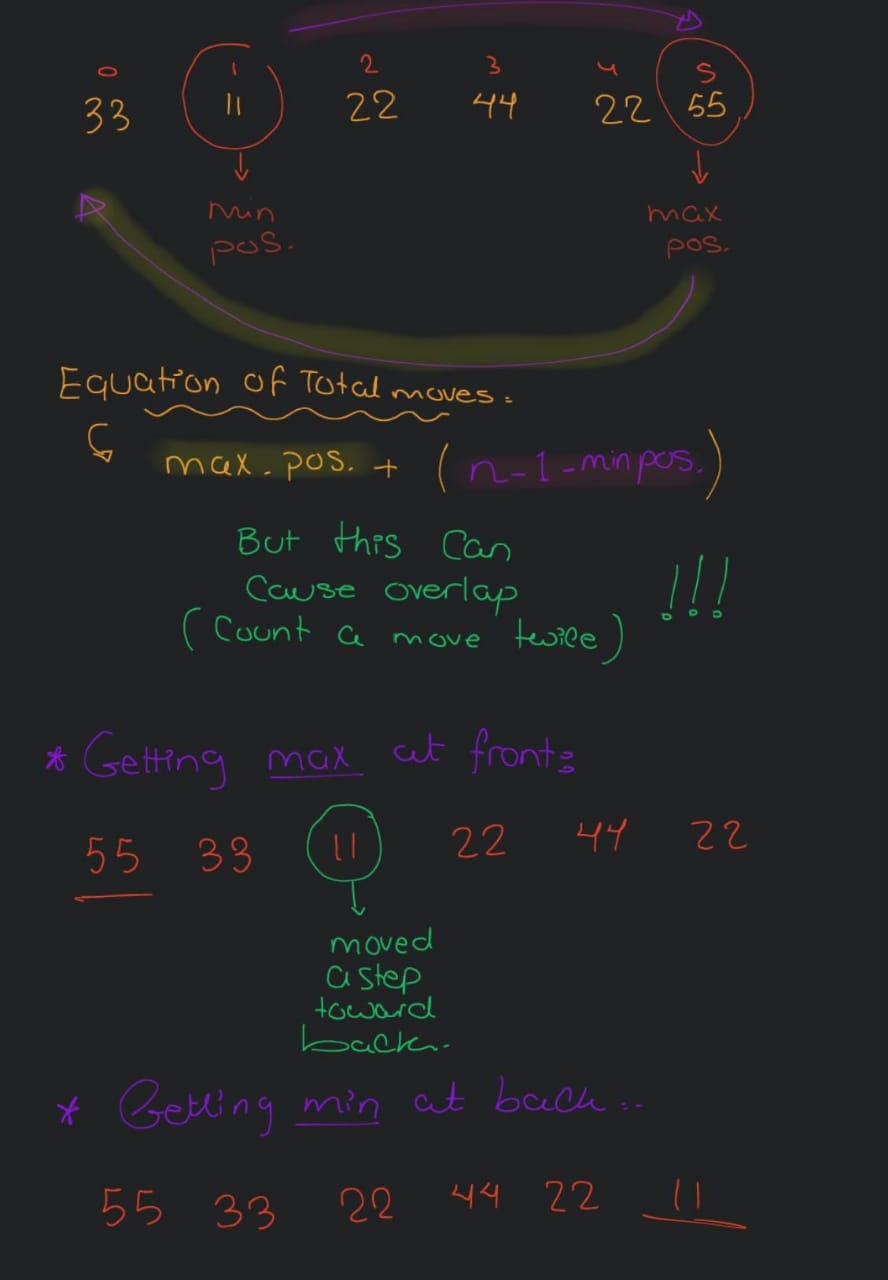 0 1 2 3 4 5
33 11 22 44 22 55
min max
pos. pos.
Equation of Total moves:
max. pos. + (n-1-min pos.)
But this Can
Cause overlap !!!
(Count a move twice)
* Getting max at front:
55 33 11 22 44 22
moved
a step
toward
back.
* Getting min at back:
55 33 22 44 22 11